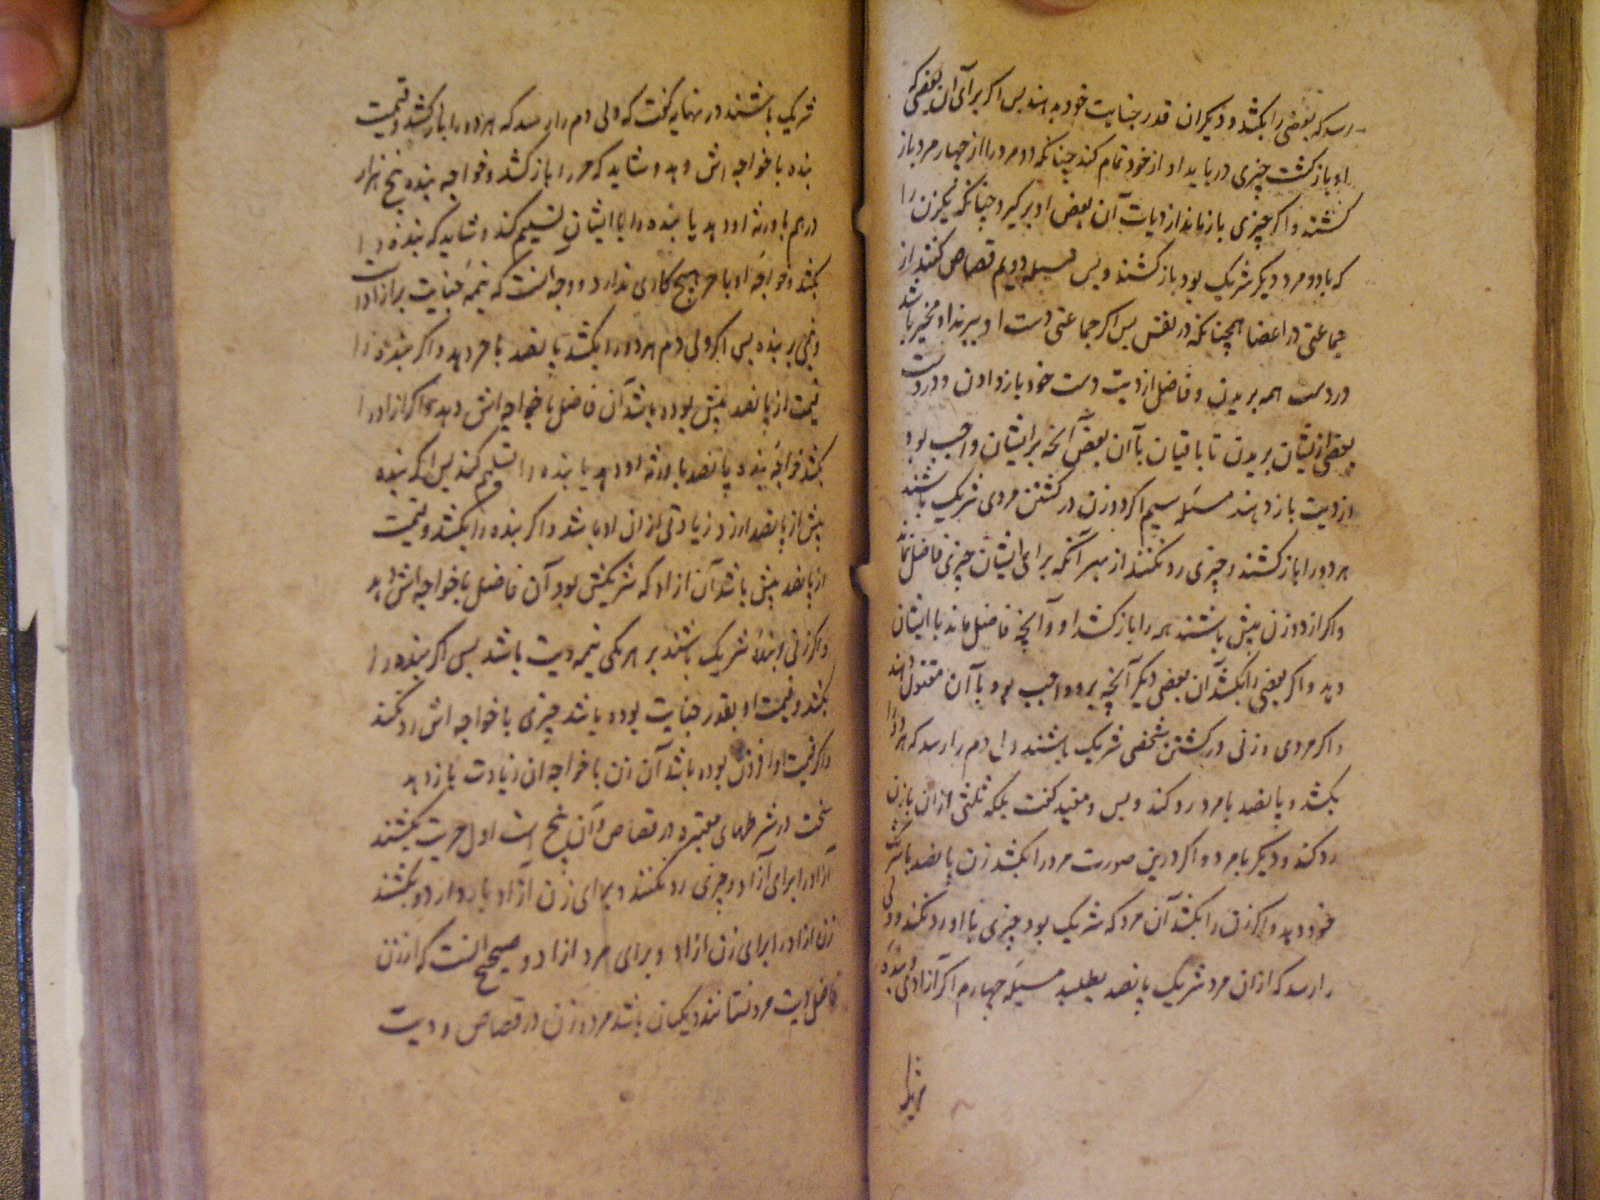 رسد که بعضی را بکشد و دیکران قدر جنایت خود بدهند بس اکر برای آن بعضی که
او باز کشت چیزی درباید او از خود تمام کند چنانکه دو مرد را از چهار مرد باز
کشتند و اکر چیزی باز ماند از دیات آن بعض او برکیرد چنانکه یکزن را
که با دو مرد دیکر شریک بود باز کشند و بس مسیله دویم قصاص کنند از
جماعتی در اعضا همچنانکه در نفس بس اکر جماعتی دست او ببرند او مخیر باشد
در دست همه بریدن و فاضل از دیت دست خود باز دادن و در دست
بعضی ازیشان بریدن تا باقیان بآن بعض آنچه برایشان واجب بود
از دیت باز دهند مسئله سیم اکر دو زن در کشتن مردی شریک باشند
هر دو را باز کشند و چیزی رد نکنند از بهر آنکه برای ایشان چیزی فاضل نماند
و اکر از دو زن بیش باشند همه را باز کشد او و آنچه فاضل ماند با ایشان
دهد و اکر بعضی را بکشد آن بعضی دیکر آنچه برو واجب بود با آن مقتول دهند
و اکر مردی و زنی در کشتن شخصی شریک باشند ولی دم را رسد که هر دو را
بکشد و پانصد با مرد رد کند و بس و مفید کفت بلکه ثلثی از ان با زن
رد کند و دیکر با مرد و اکر درین صورت مرد را بکشد زن پانصد با شرکت
خود دهد و اکر زن را بکشد آن مرد که شریک بود چیزی با او رد نکند و ولی
را رسد که از ان مرد شریک پانصد بطلبد مسیله چهارم اکر آزادی و بنده
شریک
شریک باشند در نهایه کفت که ولی دم را رسد که هر دو را باز کشد و قیمت
بنده با خواجه اش دهد و شاید که حر را باز کشد و خواجه بنده پنج هزار
درهم با ورثه او دهد یا بنده را با ایشان تسلیم کند و شاید که بنده را
بکشد و خواجه او با حر هیچ کاری ندارد و وجه آنست که نیمه جنایت بر آزاد است
و نیمی بر بنده بس اکر ولی دم هر دو را بکشد پانصد با حر دهد و اکر بنده را
قیمت از پانصد بیش بوده باشد آن فاضل با خواجه اش دهد و اکر ازاد را
بکشد خواجه بنده پانصد با ورثه او دهد یا بنده را تسلیم کند بس اکر بنده
بیش از پانصد ارزد زیادتی از ان او باشد و اکر بنده را بکشد و قیمت
از پانصد بیش باشد آن ازاد که شریکش بود آن فاضل با خواجه اش دهد
و اکر زنی و بنده شریک باشند بر هر یکی نیمه دیت باشد بس اکر بنده را
بکشد و قیمت او بقدر جنایت بوده باشد چیزی با خواجه اش رد نکند
و اکر قیمت او افزون بوده باشد آن زن با خواجه ان زیادت باز دهد
بحث در شرطهای معتبره در قصاص و آن پنج است اول حریت بکشند
آزاد را برای آزاد و چیزی رد نکنند و برای زن آزاد با رد از دو بکشند
زن ازاد را برای زن ازاد و برای مرد ازاد و صحیح آنست که از زن
فاضل دیت مرد نستانند و یکسان باشد مرد و زن در قصاص و دیت